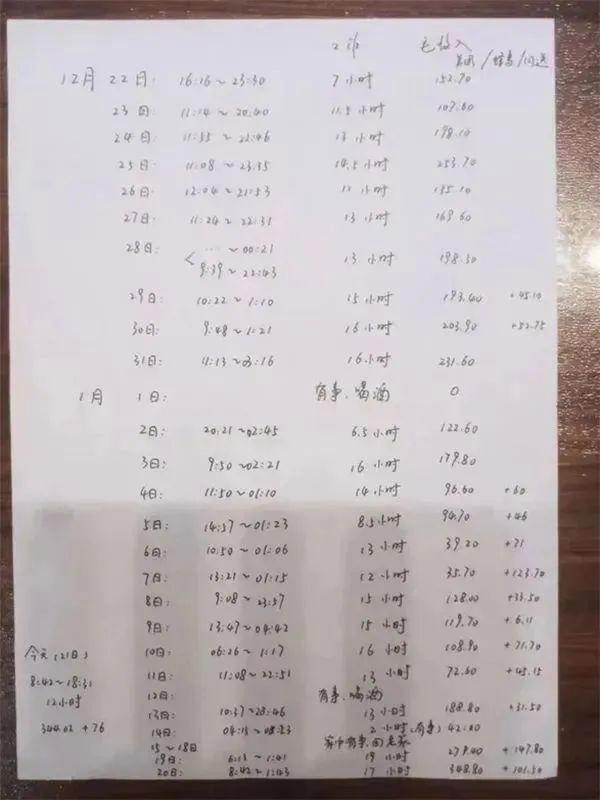 工作 毛收入
美团/蜂鸟/闪送
12月 22日: 16:16~23:30 7小时 152.70
23日: 11:14~20:40 11.5小时 107.60
24日: 11:55~22:46 13小时 198.10
25日: 11:08~23:35 14.5小时 253.70
26日: 12:04~21:53 11小时 135.10
27日: 11:24~22:31 13小时 169.60
28日: < ... ~00:21
9:39~22:43 13小时 198.30
29日: 10:22~1:10 15小时 193.40 +45.10
30日: 9:48~1:21 16小时 203.90 +52.75
31日: 11:13~03:16 16小时 231.60
1月 1日: 有事、喝酒 0
2日: 20:21~02:45 6.5小时 122.60
3日: 9:50~02:21 16小时 179.80
4日: 11:50~01:10 14小时 96.60 +60
5日: 14:37~01:23 8.5小时 94.70 +46
6日: 10:50~01:06 13小时 39.20 +71
7日: 13:21~01:15 12小时 35.70 +123.70
8日: 9:08~23:57 15小时 128.00 +33.50
9日: 13:47~04:42 15小时 119.70 +6.11
10日: 06:26~1:17 16小时 108.90 +71.70
11日: 11:08~22:51 13小时 72.60 +45.15
12日: 有事、喝酒
13日: 10:37~23:46 13小时 188.80 +31.50
14日: 04:15~08:23 2小时(有事) 42.00
15~18日 家中有事,回老家
19日: 6:13~1:41 19小时 279.00 +147.80
20日: 8:42~1:43 17小时 348.80 +101.50
今天(21日)
8:42~18:31
12小时
344.02 +76